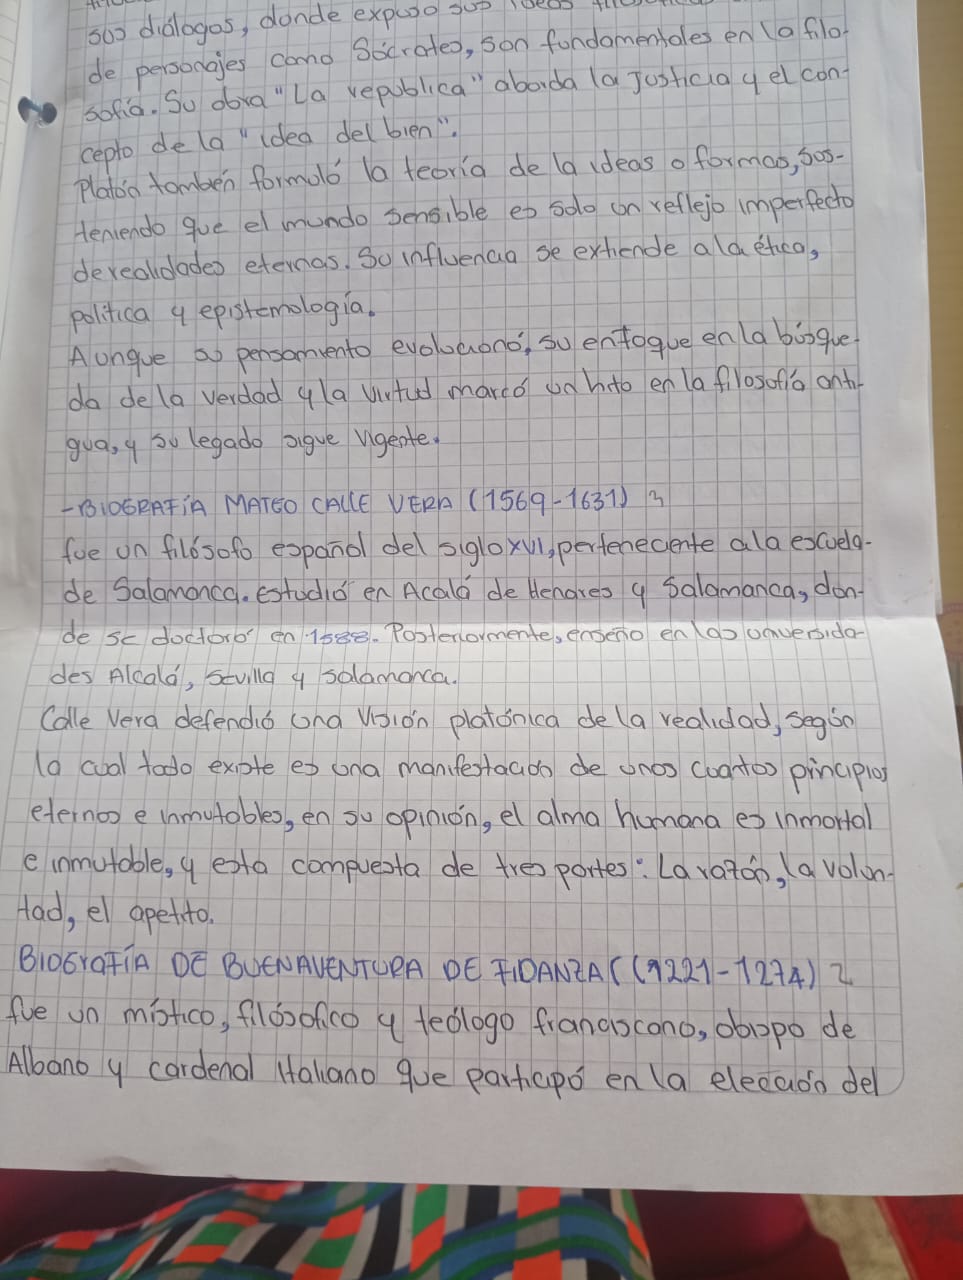 sus diálogos, donde expuso sus ideas
de personajes como Sócrates, son fundamentales en la filo-
sofía. Su obra "La republica" aborda la Justicia y el con-
cepto de la "idea del bien".
Platón también formuló la teoría de la ideas o formas, sos-
teniendo que el mundo sensible es solo un reflejo imperfecto
de realidades eternas. Su influencia se extiende a la ética,
política y epistemología.
Aunque su pensamiento evolucionó, su enfoque en la búsque-
da de la verdad y la virtud marcó un hito en la filosofía anti-
gua, y su legado sigue vigente.
-BIOGRAFÍA MATEO CALLE VERA (1569-1631)
fue un filósofo español del siglo XVI, perteneciente a la escuela-
de Salamanca. Estudió en Acalá de Henares y Salamanca, don-
de se doctoró en 1588. Posteriormente, enseño en las universida-
des Alcalá, Sevilla y Salamanca.
Calle Vera defendió una visión platónica de la realidad, según
la cual todo existe es una manifestación de unos cuantos principios
eternos e inmutables, en su opinión, el alma humana es inmortal
e inmutable, y esta compuesta de tres partes: La razón, la volun-
tad, el apetito.
BIOGRAFÍA DE BUENAVENTURA DE FIDANZA ((1221-1274)
fue un místico, filósofico y teólogo franciscano, obispo de
Albano y cardenal italiano que participó en la elección del